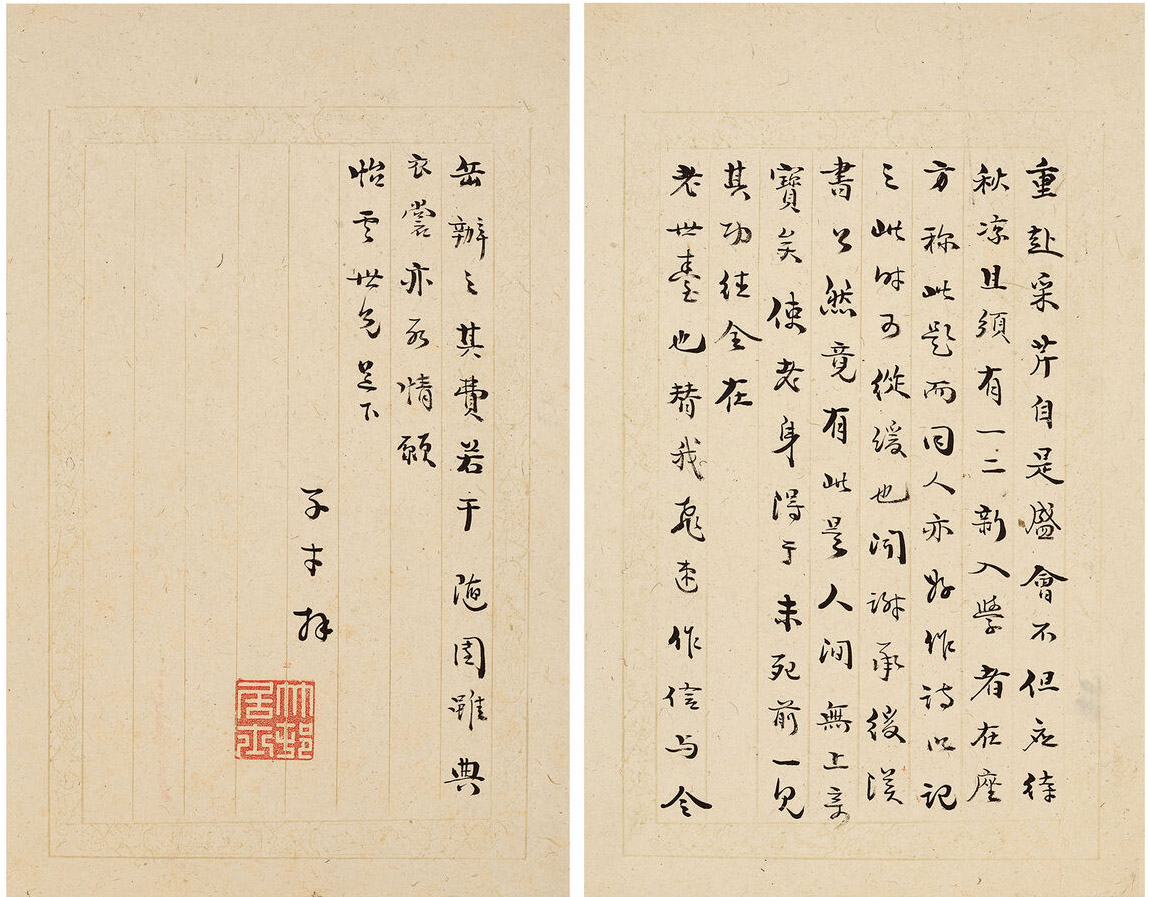 重赴采芹自是盛會不但應待
秋涼且須有一二新入學者在座
方稱此題而同人亦好作詩以記
之此時可從緩也聞謝承後漢
書公然竟有此是人間無上奇
寶矣使老身得于未死前一見
其功德全在
老世臺也替我飛速作信与令
岳辦之其費若干隨園雖典
衣裳亦所情願
怡雲世兄足下
子才拜